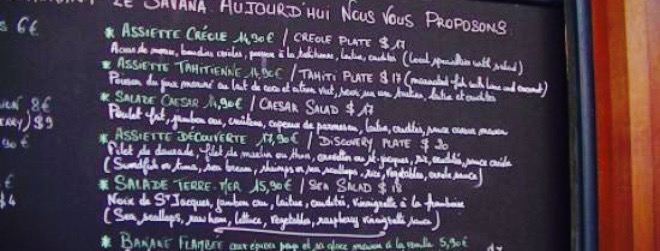 LE SAVANA AUJOURD'HUI NOUS VOUS PROPOSONS
s 6€
* ASSIETTE CRÉOLE 14,90€ / CREOLE PLATE $ 17
Acras de morue, boudins créoles, poisson à la tahitienne, laitue, crudités (Local specialities with salad)
* ASSIETTE TAHITIENNE 14,90€ / TAHITI PLATE $ 17 (marinated fish with lime and coconut)
Poisson du jour mariné au lait de coco et citron vert, servi sur une laitue et crudités
8€
* SALADE CAESAR 14,90€ / CAESAR SALAD $ 17
RRY) $9
Poulet fait, jambon cru, croûtons, copeaux de parmesan, laitue, crudités, sauce caesar maison
90€
* ASSIETTE DÉCOUVERTE 17,90€ / DISCOVERY PLATE $ 20
Filet de daurade, filet de marlin ou thon, ou st-jacques, riz, crudités, sauce créole
(Swordfish or tuna, sea bream, shrimps or sea scallops, rice, Vegetables, creole sauce)
€
* SALADE TERRE-MER 15,90€ / SEA SALAD $ 18
$4
Noix de St Jacques, jambon cru, laitue, crudités, vinaigrette à la framboise
(Sea scallops, raw ham, lettuce, vegetables, raspberry vinaigrette sauce)
* BANANE FLAMBÉE aux épices pays et sa glace maison à la vanille 5,90€